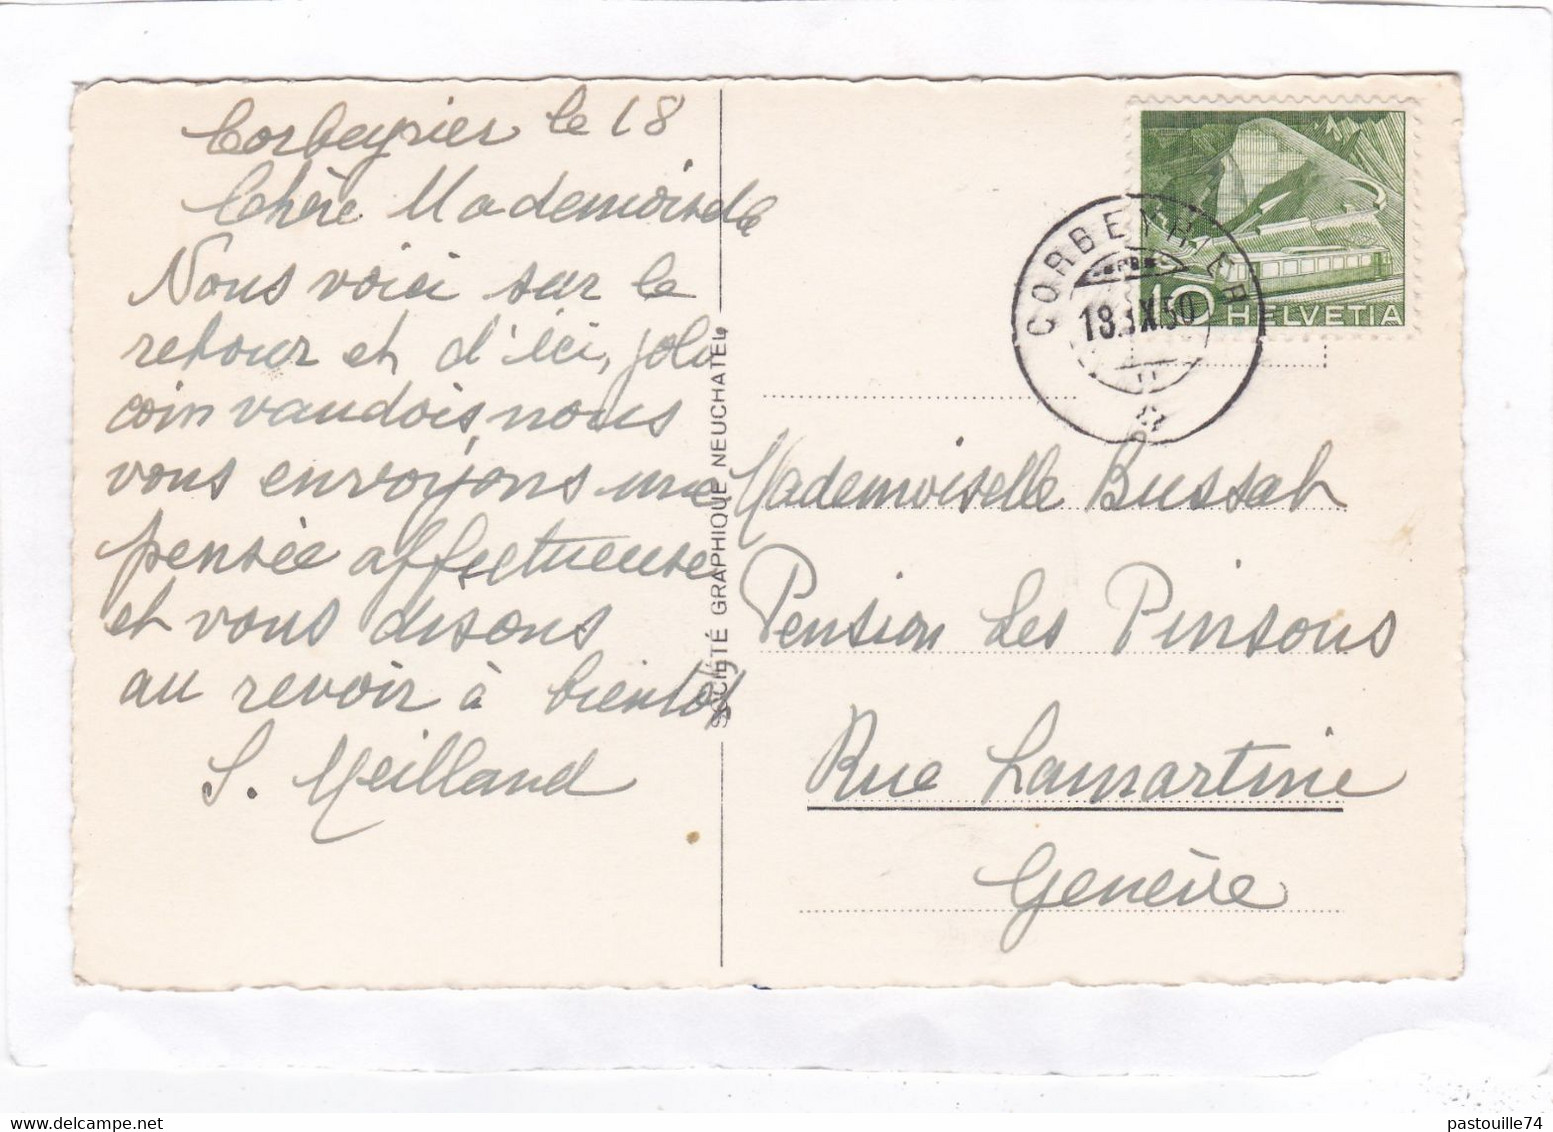 Corbeyrier le 18
Chère Mademoiselle
Nous voici sur le
retour et d'ici, joli
coin vaudois, nous
vous envoyons une
pensée affectueuse
et vous disons
au revoir à bientôt
S. Meilland
SOCIÉTÉ GRAPHIQUE NEUCHATEL
CORBEYRIER
18.IX.50
10 HELVETIA
Mademoiselle Bussat
Pension Les Pinsons
Rue Lamartine
Genève
pastouille74